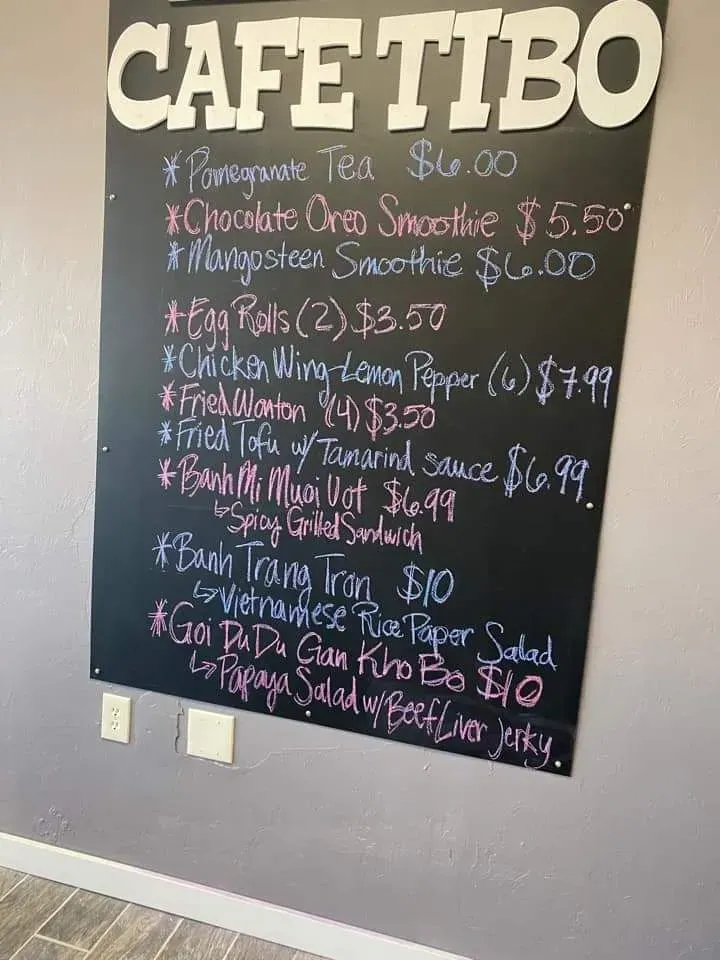 CAFE TIBO
* Pomegranate Tea $6.00
* Chocolate Oreo Smoothie $5.50
* Mangosteen Smoothie $6.00
* Egg Rolls (2) $3.50
* Chicken Wing-Lemon Pepper (6) $7.99
* Fried Wonton (4) $3.50
* Fried Tofu w/ Tamarind sauce $6.99
* Banh Mi Muoi Uot $6.99
↳ Spicy Grilled Sandwich
* Banh Trang Tron $10
↳ Vietnamese Rice Paper Salad
* Goi Du Du Gan Kho Bo $10
↳ Papaya Salad w/ Beef Liver Jerky